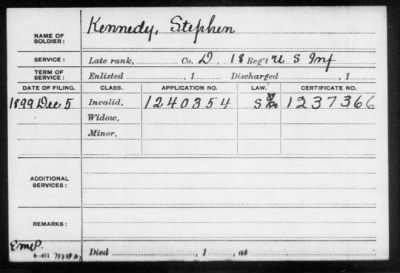 NAME OF SOLDIER: Kennedy, Stephen
SERVICE: Late rank, Co. D. 18 Reg't U S Inf
TERM OF SERVICE: Enlisted , 1 Discharged , 1
DATE OF FILING. CLASS. APPLICATION NO. LAW. CERTIFICATE NO.
1899 Dec 5 Invalid, 1240354 S 1237366
Widow,
Minor,
ADDITIONAL SERVICES:
REMARKS:
Died , 1 , at